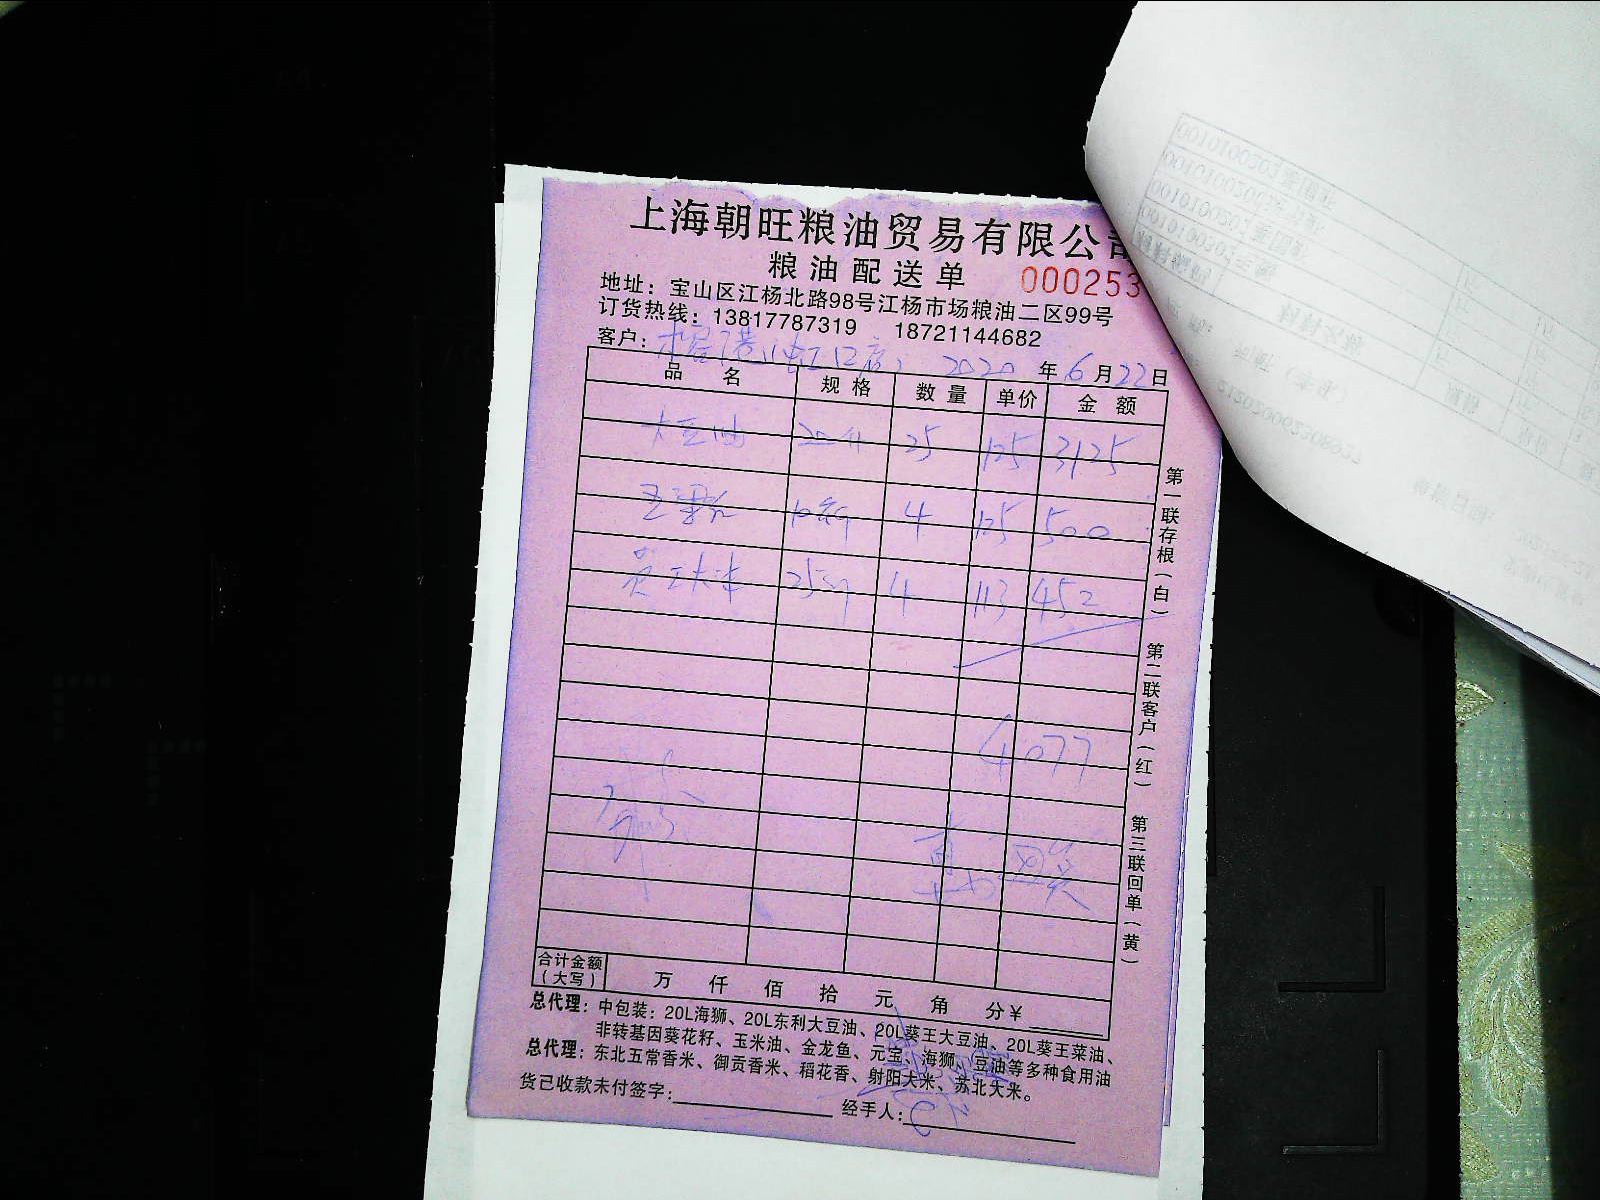 上海朝旺粮油贸易有限公司
粮油配送单 000253
地址：宝山区江杨北路98号江杨市场粮油二区99号
订货热线：13817787319 18721144682
客户： 2020年6月22日
品名 规格 数量 单价 金额
大豆油 20升 25 125 3125
4 125 500
大米 25 4 113 452
4077
合计金额（大写） 万 仟 佰 拾 元 角 分￥
总代理：中包装：20L海狮、20L东利大豆油、20L葵王大豆油、20L葵王菜油、
非转基因葵花籽、玉米油、金龙鱼、元宝、海狮、豆油等多种食用油
总代理：东北五常香米、御贡香米、稻花香、射阳大米、苏北大米。
货已收款未付签字： 经手人：
第一联存根（白） 第二联客户（红） 第三联回单（黄）